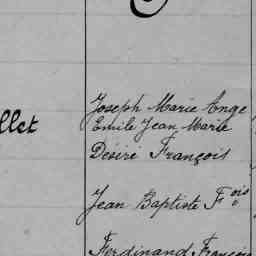 Joseph Marie Ange
Emile Jean Marie
llet
Désiré François
Jean Baptiste Fois
Ferdinand François